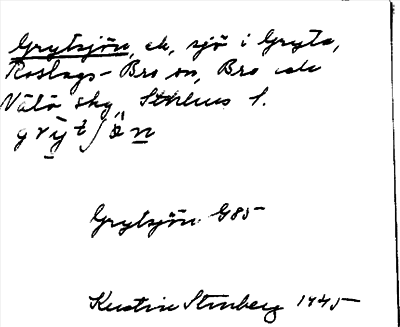 Grytsjön, ek, sjö i Gryta,
Roslags-Bro sn, Bro och
Vätö skg, Sthlms l.
grỳtʃö̀n
Grytsjön G85
Kerstin Stenberg 1945